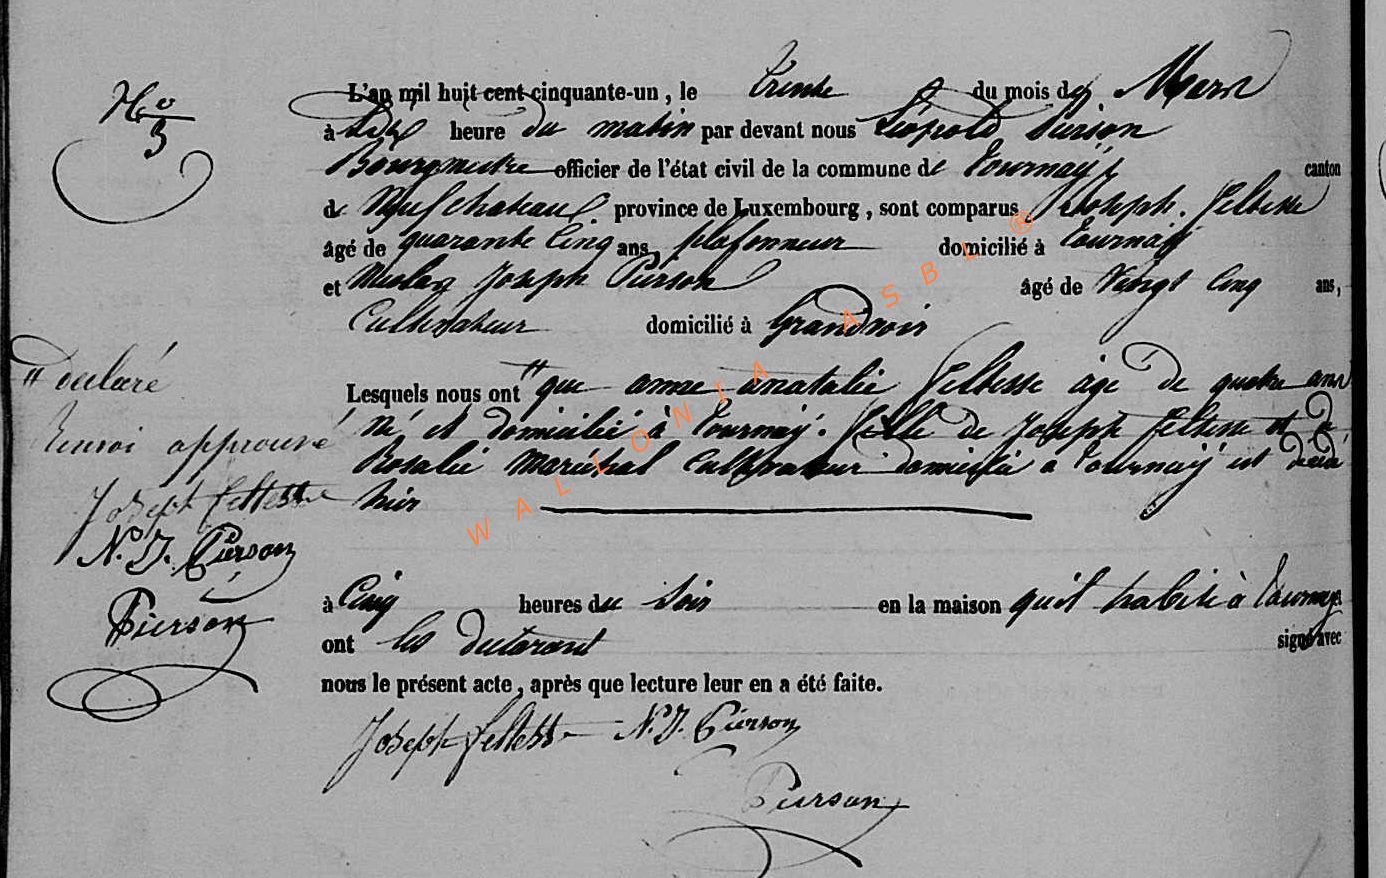 No 3
L'an mil huit cent cinquante-un, le trente du mois de Mars
à dix heure du matin par devant nous Léopold Pierson
Bourgmestre officier de l'état civil de la commune de Tournay, canton
de Neufchateau, province de Luxembourg, sont comparus Joseph Feltesse
âgé de quarante cinq ans plafonneur domicilié à Tournay
et Nicolas Joseph Pierson âgé de vingt cinq ans,
Cultivateur domicilié à Grandvoir
Lesquels nous ont # que anne anatalie Feltesse age de quatre ans
né et domicilié à Tournay. fille de Joseph Feltesse et de
Rosalie Maréchal Cultivateur domicilié a Tournay est décédé
hier
à Cinq heures du Soir en la maison qu'il habite à Tournay
ont les declarant signé avec
nous le présent acte, après que lecture leur en a été faite.
Joseph feltesse N. J. Pierson
Pierson
# declaré
Renvoi approuvé
Joseph feltesse
N. J. Pierson
Pierson
WALLONIA ASBL ®